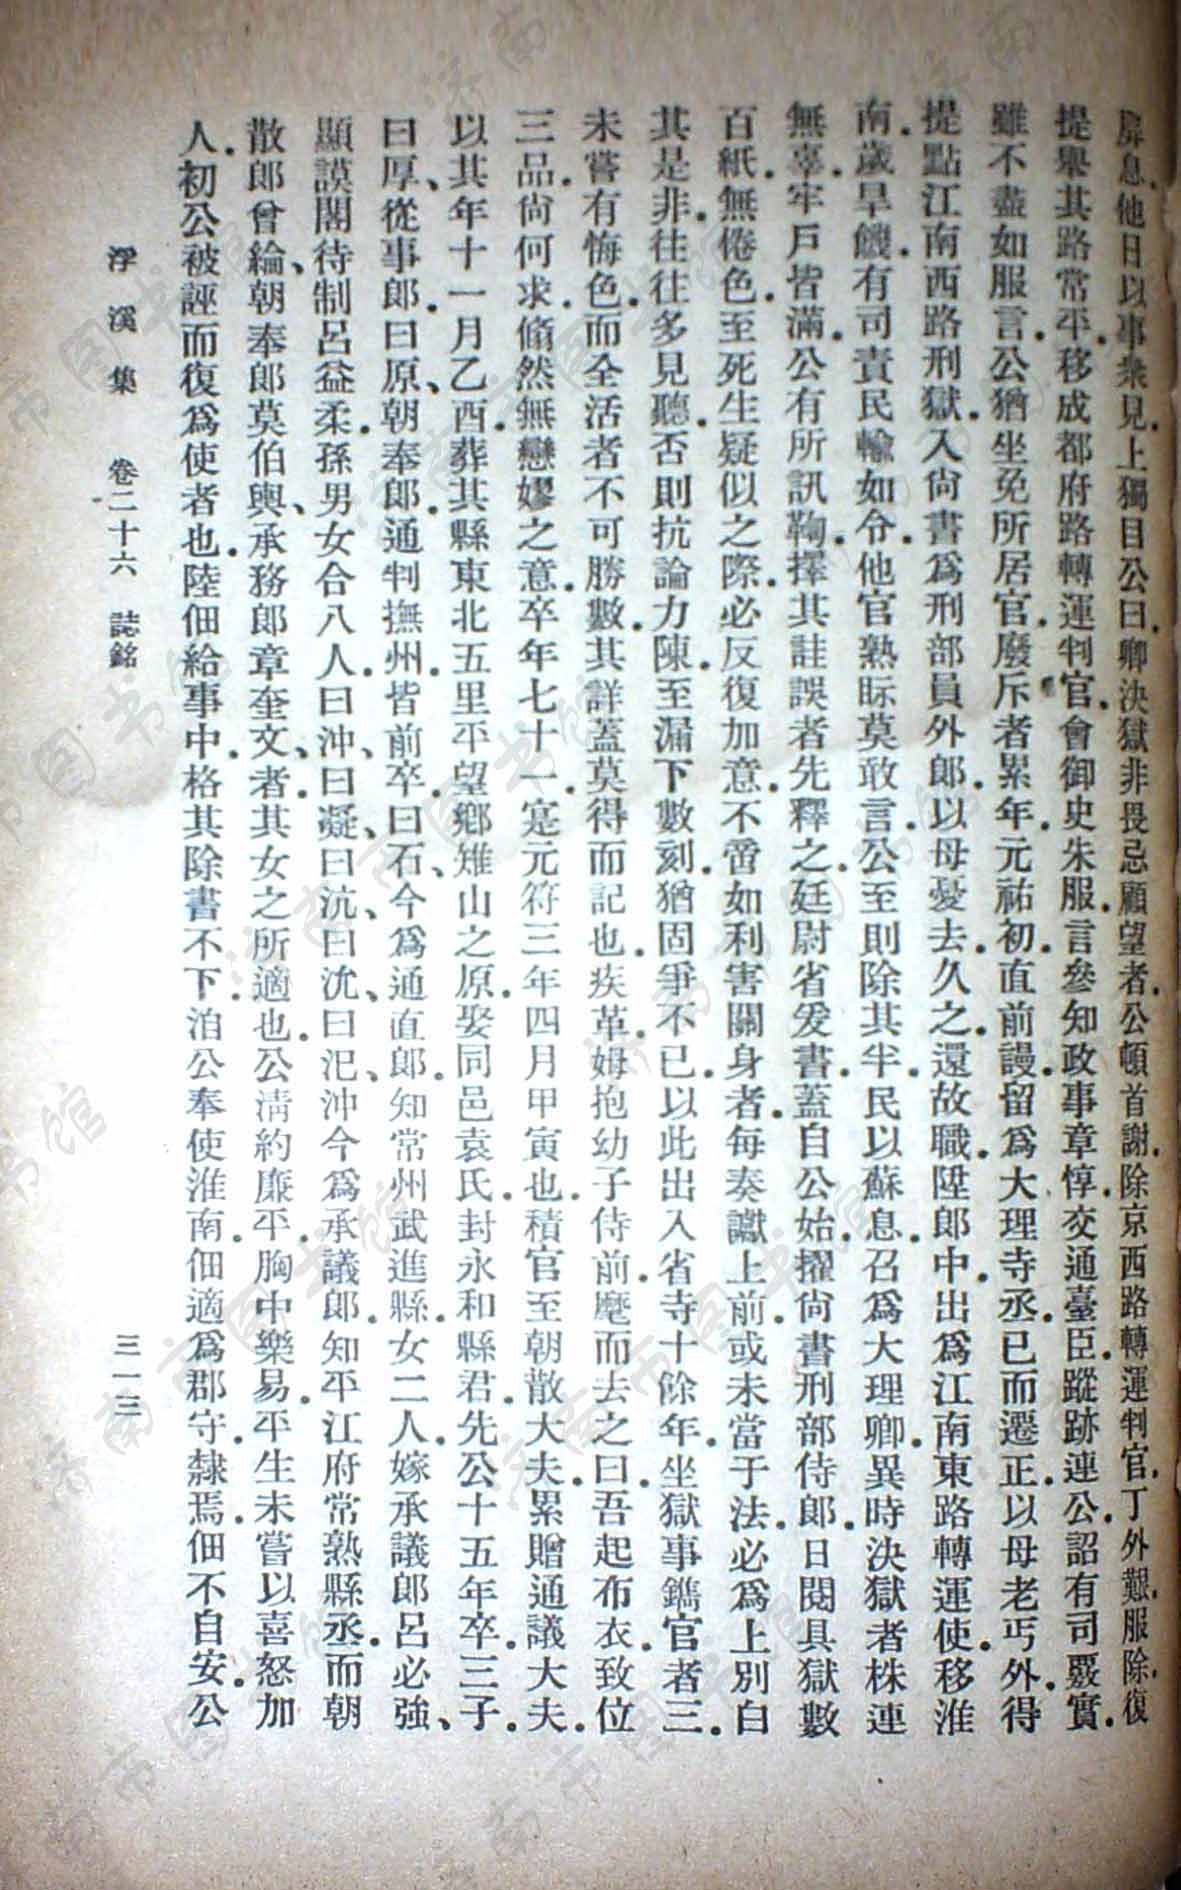 屏息。他日以事衆見。上獨目公曰。卿決獄非畏忌顧望者。公頓首謝。除京西路轉運判官。丁外艱。服除。復
提舉其路常平。移成都府路轉運判官。會御史朱服。言參知政事章惇。交通臺臣。蹤跡連公。詔有司覈實。
雖不盡如服言。公猶坐免所居官。廢斥者累年。元祐初。直前謾。留爲大理寺丞。已而遷正。以母老丐外。得
提點江南西路刑獄。入尙書爲刑部員外郎。以母憂去。久之。還故職。陞郎中。出爲江南東路轉運使。移淮
南。歲旱饑。有司責民輸如令。他官熟眎莫敢言。公至則除其半。民以蘇息。召爲大理卿。異時決獄者株連
無辜。牢戶皆滿。公有所訊鞫。擇其詿誤者先釋之。廷尉省爰書。蓋自公始。擢尙書刑部侍郎。日閱具獄數
百紙。無倦色。至死生疑似之際。必反復加意。不啻如利害關身者。每奏讞上前。或未當于法。必爲上別白
其是非。往往多見聽。否則抗論力陳。至漏下數刻。猶固爭不已。以此出入省寺十餘年。坐獄事鐫官者三。
未嘗有悔色。而全活者不可勝數。其詳蓋莫得而記也。疾革。姆抱幼子侍前。麾而去之曰。吾起布衣。致位
三品。尙何求。翛然無戀嫪之意。卒年七十一。寔元符三年四月甲寅也。積官至朝散大夫。累贈通議大夫。
以其年十一月乙酉。葬其縣東北五里平望鄉雉山之原。娶同邑袁氏。封永和縣君。先公十五年卒。三子。
曰厚、從事郎。曰原、朝奉郎。通判撫州。皆前卒。曰石、今爲通直郎。知常州武進縣。女二人。嫁承議郎呂必強、
顯謨閣待制呂益柔。孫男女合八人。曰沖、曰凝、曰沆、曰沇、曰汜、沖今爲承議郎。知平江府常熟縣丞。而朝
散郎曾綸、朝奉郎莫伯輿、承務郎章奎文、者。其女之所適也。公淸約廉平。胸中樂易。平生未嘗以喜怒加
人。初公被誣而復爲使者也。陸佃給事中。格其除書不下。洎公奉使淮南。佃適爲郡守隸焉。佃不自安。公
浮溪集　卷二十六　誌銘　三一三